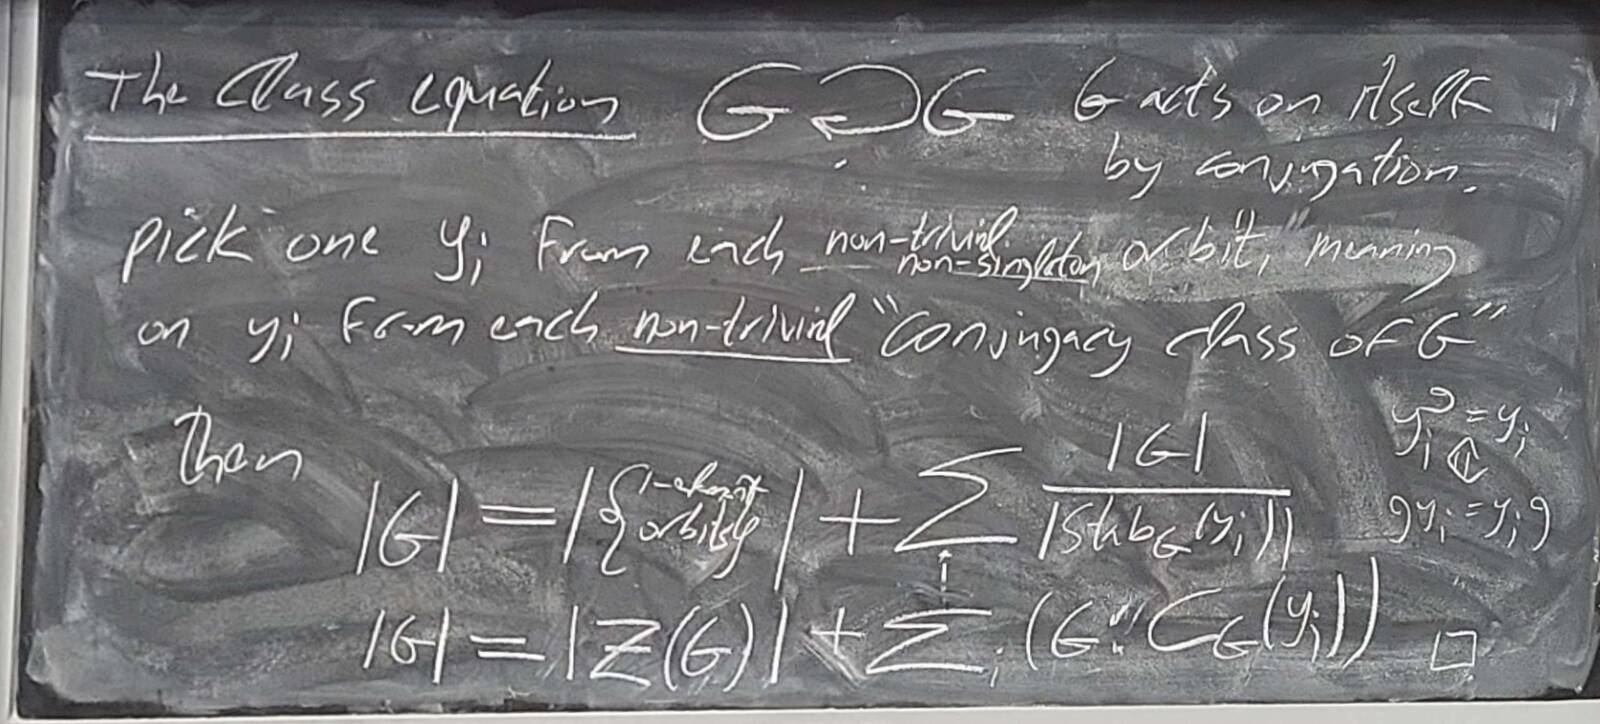 The Class equation G ↻ G G acts on itself
by conjugation.
pick one yᵢ from each non-trivial non-singleton orbit, meaning
on yᵢ from each non-trivial "conjugacy class of G"
Then
yᵢᵍ = yᵢ
⇕
gyᵢ = yᵢg
|G| = |{1-element orbits}| + Σᵢ |G| / |Stab_G(yᵢ)|
|G| = |Z(G)| + Σᵢ (G : C_G(yᵢ)) □